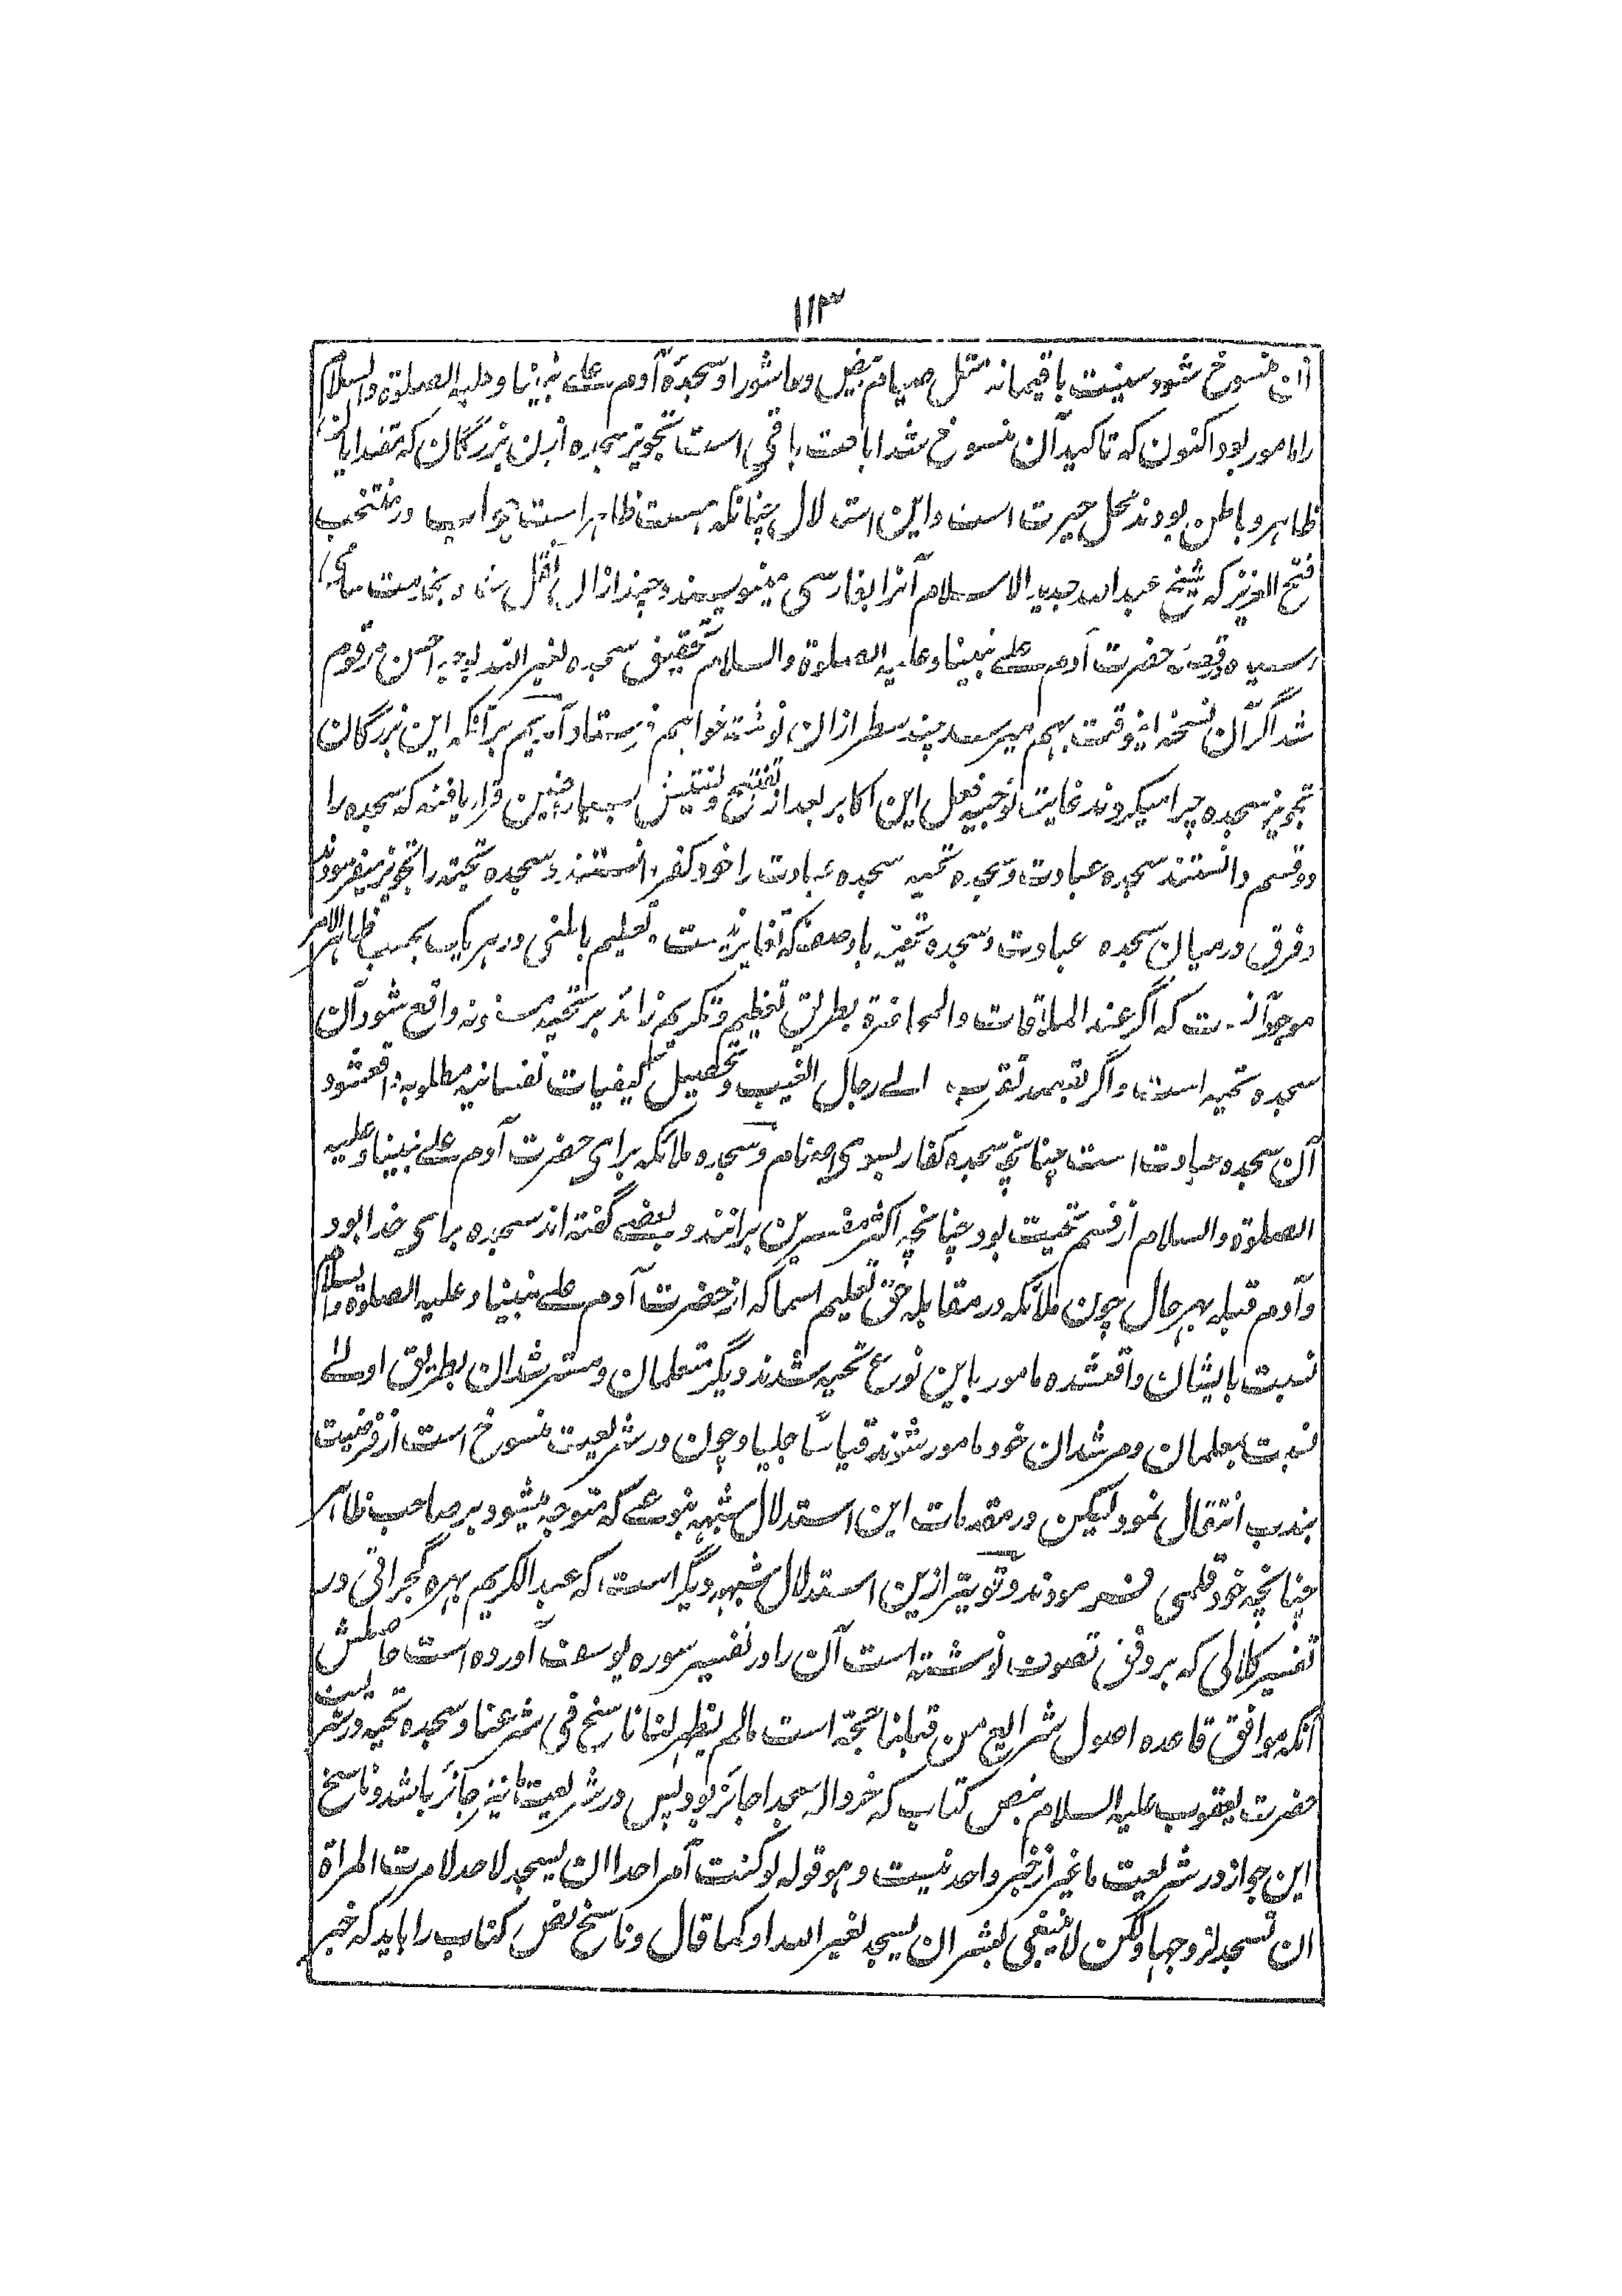 ۱۱۳
ازان منسوخ شود سنیت باقیماند مثل صیام بیض و عاشورا و سجده آدم علے نبینا و علیه الصلوة والسلام
را مامور بود اکنون که تاکید آن منسوخ شد اباحت باقی است تجویز سجده ازین بزرگان که مقتدایان
ظاهر و باطن بودند محل حیرت است و این استدلال چنانکه هست ظاهر است جواب در منتخب
فتح العزیز که شیخ عبد الله جدید الاسلام آنرا بفارسی مینویسند و چند ازان نقل بخدمت سامی
رسیده وقصه حضرت آدم علے نبینا وعلیه الصلوة والسلام تحقیق سجده لغیر الله بوجه احسن مرقوم
شد اگر آن نسخه اینوقت بهم میرسد چند سطر ازان نوشته خواهم فرستاد آمدیم برآنکه این بزرگان
تجویز سجده چرا میکردند غایت توجیه فعل این اکابر بعد از تنقیح و تفتیش بسیار چنین قرار یافته که سجده را
دو قسم دانستند سجده عبادت و سجده تحیه سجده عبادت را خود کفر دانستند و سجده تحیه را تجویز میفرمودند
و فرق درمیان سجده عبادت و سجده تحیه باوصف که تعظیم باطنی در هر یک بحسب ظاهر الامر
موجود است که اگر عند الملاقات والمحاضرة بطریق تعظیم و تکریم زائد بر تحیه مسنونه واقع شود آن
سجده تحیه است واگر بقصد تقرب الے رجال الغیب و تحصیل کیفیات نفسانیه مطلوبه واقعشود
آن سجده عبادت است چنانچه سجده کفار بسوی اصنام و سجده ملائکه برای حضرت آدم علے نبینا وعلیه
الصلوة والسلام از قسم تحیت بود چنانچه اکثر مفسرین برانند و بعضے گفته اند سجده برای خدا بود
و آدم قبله بهر حال چون ملائکه در مقابله حق تعلیم اسما که از حضرت آدم علے نبینا و علیه الصلوة والسلام
نسبت بایشان واقعشده مامور باین نوع تحیه شدند دیگر متعلمان و مسترشدان بطریق اولے
نسبت بمعلمان و مرشدان خود مامور شوند قیاسًا جلیا و چون در شریعت منسوخ است از فرضیت
بندب انتقال نمود لیکن در مقدمات این استدلال شبهه بنوعے که متوجه میشود بر صاحب ظاهر
چنانچه خود قلمی فرمودند و قویتر ازین استدلال شبهه دیگر است که عبد الکریم بهره گجراتی در
تفسیر کلالی که بر وفق تصوف نوشته است آن را در تفسیر سوره یوسف آورده است حاصلش
آنکه موافق قاعده اصول شرایع من قبلنا حجة است مالم یظهر لنا ناسخ فی شرعنا و سجده تحیه در شریعت
حضرت یعقوب علیه السلام بنص کتاب که خروا له سجدا جائز بود پس در شریعت ما نیز جائز باشد و ناسخ
این جواز در شریعت ما غیر از خبر واحد نیست و هو قوله لو کنت آمر احدا ان یسجد لاحد لامرت المراة
ان تسجد لزوجها ولکن لا ینبغی لبشر ان یسجد لغیر الله او کما قال و ناسخ نص کتاب را باید که خبر